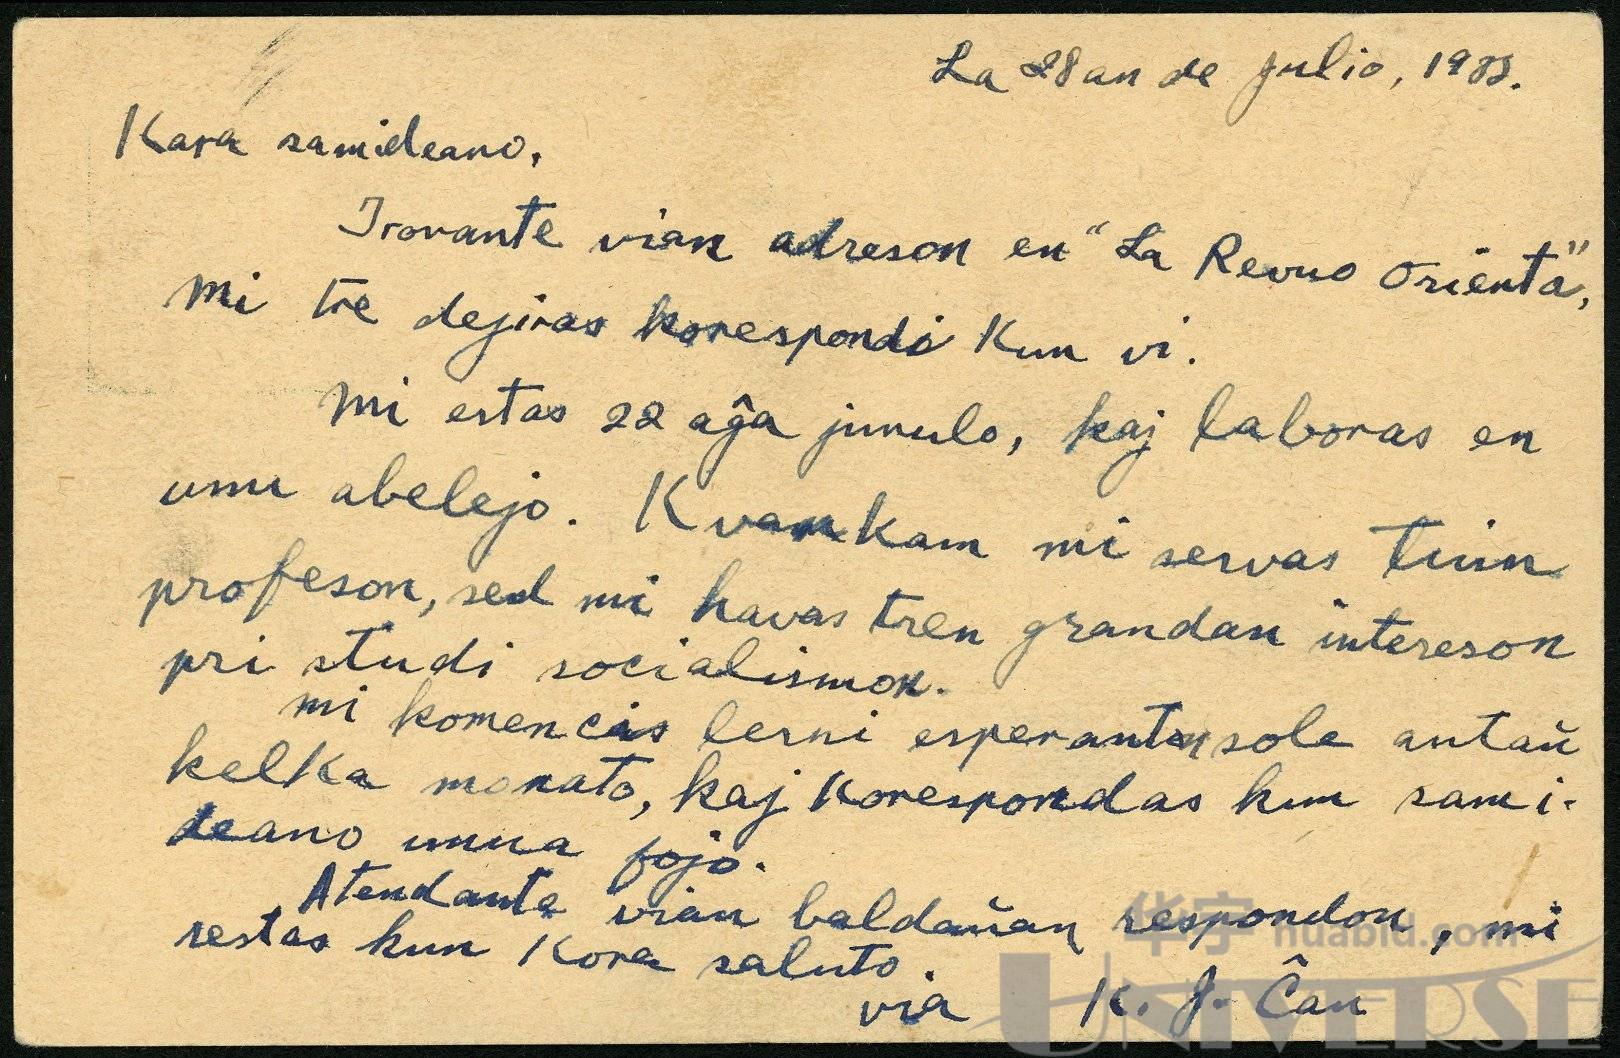 La 28an de julio, 1933.
Kara samideano,
Trovante vian adreson en "La Revuo Orienta",
mi tre deziras korespondi kun vi.
Mi estas 22 aĝa junulo, kaj laboras en
unu abelejo. Kvankam mi servas tiun
profeson, sed mi havas tren grandan intereson
pri studi socialismon.
mi komencis lerni esperanton sole antaŭ
kelka monato, kaj korespondas kun sami-
deano unua fojo.
Atendante vian baldaŭan respondon, mi
restas kun kora saluto.
via K. J. Ĉan
华宇 huabid.com
UNIVERSE